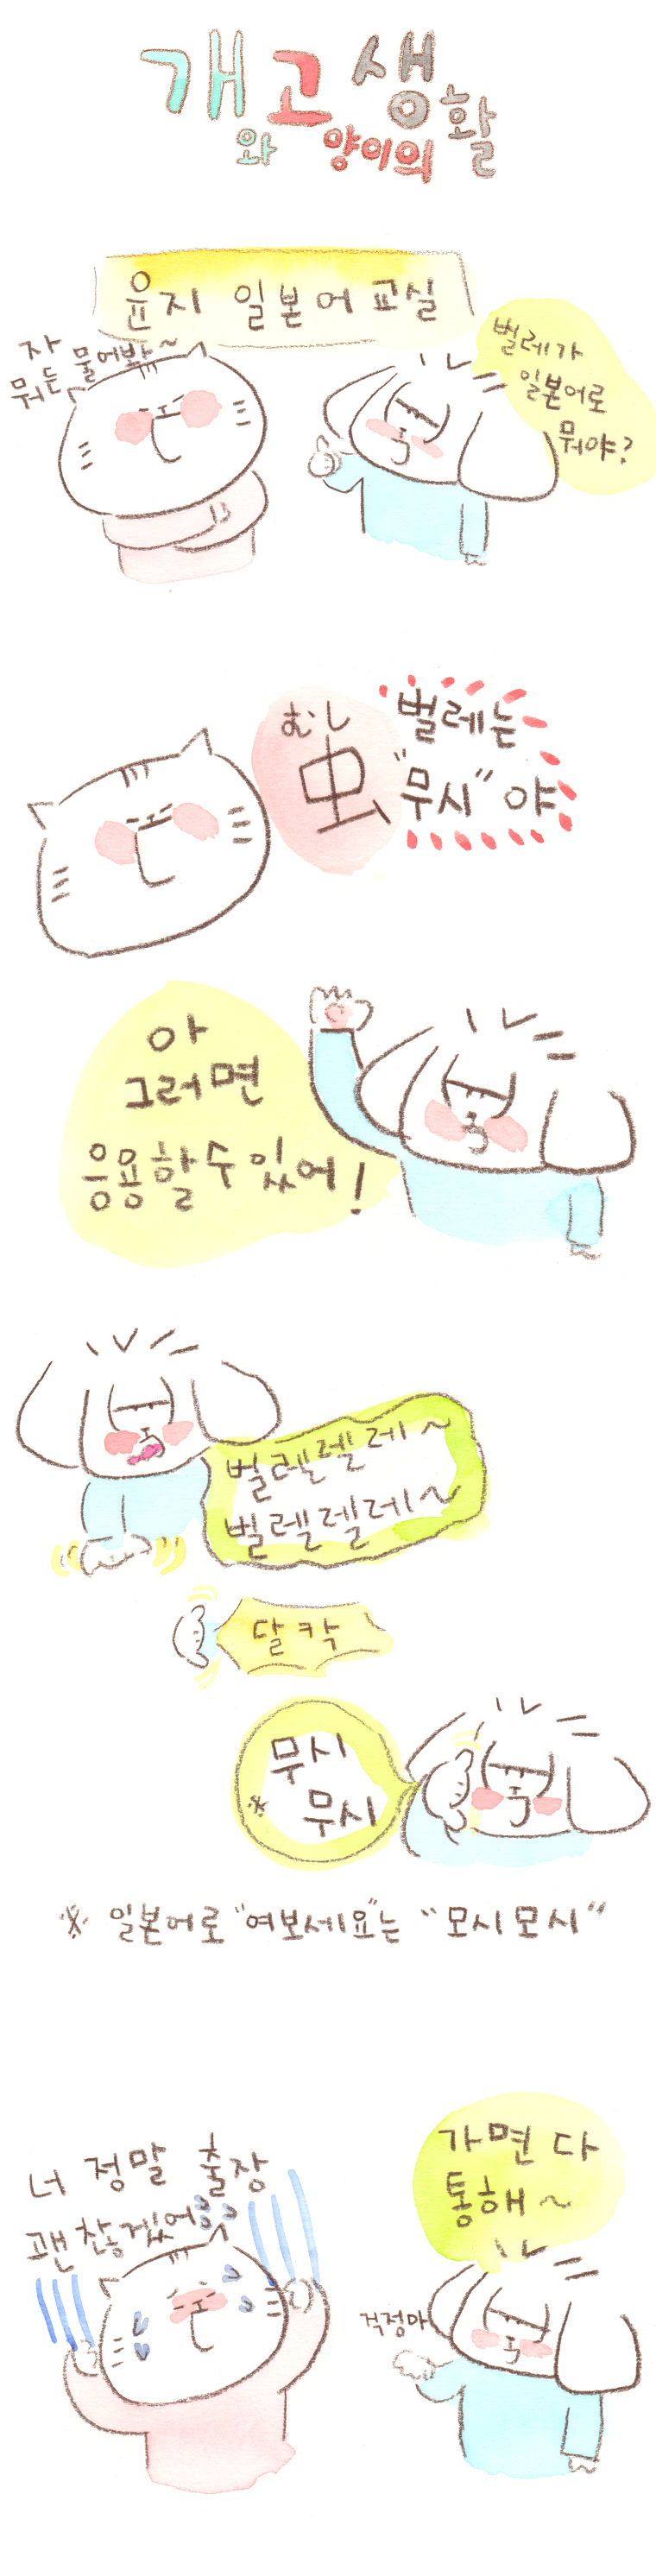 개와 고양이의 생활
윤지 일본어 교실
자
뭐든 물어봐~
벌레가
일본어로
뭐야?
むし
虫
벌레는
"무시"야
아
그러면
응용할 수 있어!
벌렐렐레~
벌렐렐레~
달칵
무시
※ 무시
※ 일본어로 "여보세요"는 "모시모시"
너 정말 출장
괜찮겠어??
가면 다
통해~
걱정마